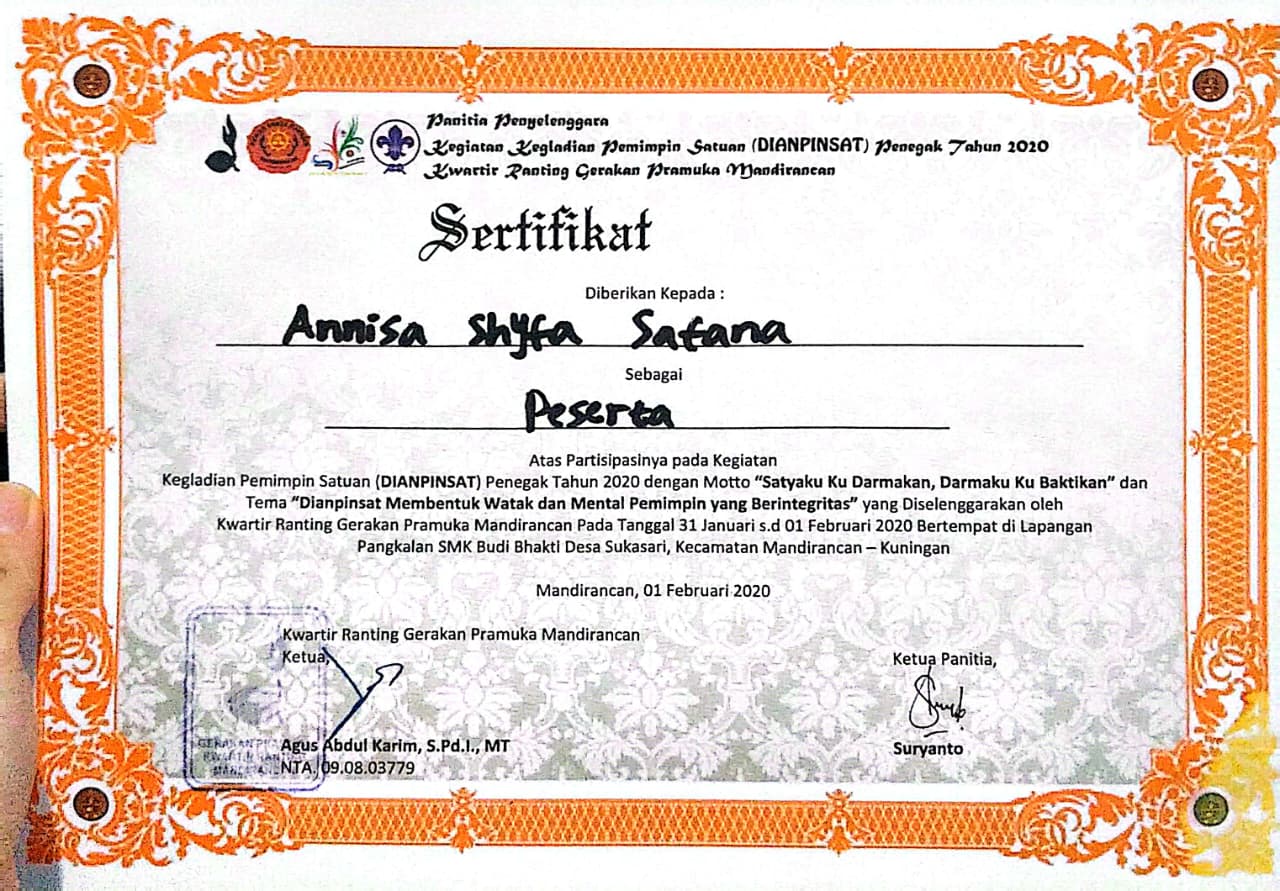 Panitia Penyelenggara
Kegiatan Kegladian Pemimpin Satuan (DIANPINSAT) Penegak Tahun 2020
Kwartir Ranting Gerakan Pramuka Mandirancan
Sertifikat
Diberikan Kepada :
Annisa Shyfa Satana
Sebagai
Peserta
Atas Partisipasinya pada Kegiatan
Kegladian Pemimpin Satuan (DIANPINSAT) Penegak Tahun 2020 dengan Motto “Satyaku Ku Darmakan, Darmaku Ku Baktikan” dan
Tema “Dianpinsat Membentuk Watak dan Mental Pemimpin yang Berintegritas” yang Diselenggarakan oleh
Kwartir Ranting Gerakan Pramuka Mandirancan Pada Tanggal 31 Januari s.d 01 Februari 2020 Bertempat di Lapangan
Pangkalan SMK Budi Bhakti Desa Sukasari, Kecamatan Mandirancan – Kuningan
Mandirancan, 01 Februari 2020
Kwartir Ranting Gerakan Pramuka Mandirancan
Ketua,
Ketua Panitia,
Agus Abdul Karim, S.Pd.I., MT
Suryanto
NTA. 09.08.03779